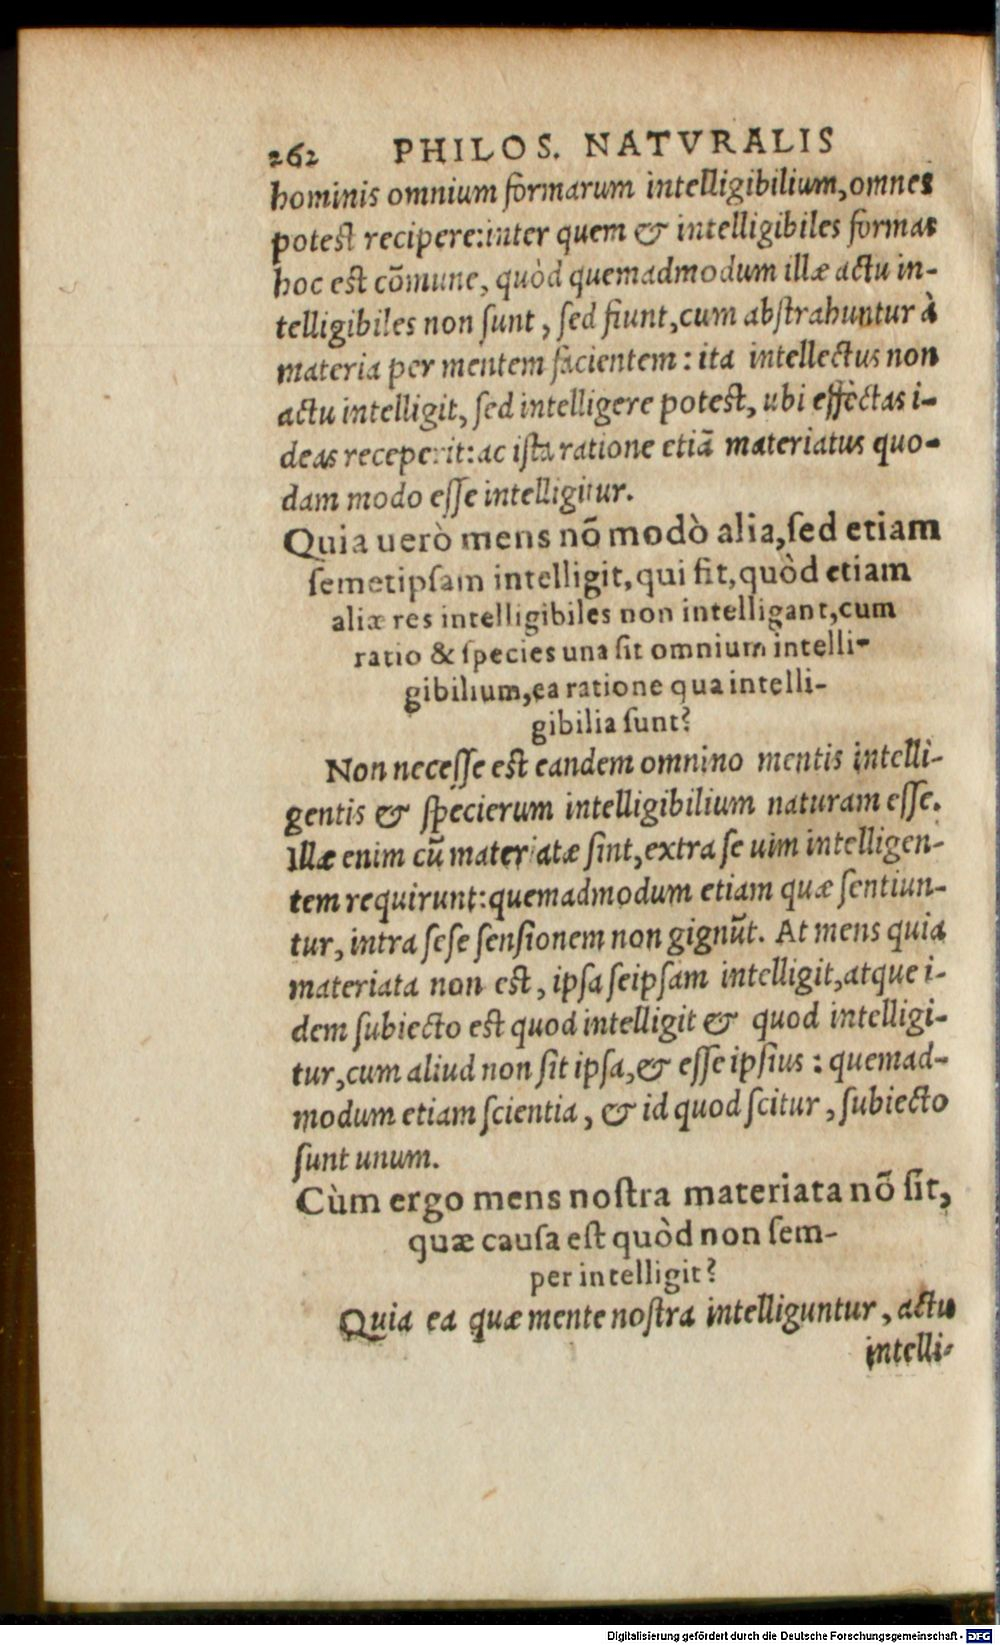 262 PHILOS. NATVRALIS
hominis omnium formarum intelligibilium, omnes
potest recipere: inter quem & intelligibiles formas
hoc est cõmune, quòd quemadmodum illæ actu in-
telligibiles non sunt, sed fiunt, cum abstrahuntur à
materia per mentem facientem: ita intellectus non
actu intelligit, sed intelligere potest, ubi effectas i-
deas receperit: ac ista ratione etiã materiatus quo-
dam modo esse intelligitur.
Quia uerò mens nõ modò alia, sed etiam
semetipsam intelligit, qui fit, quòd etiam
aliæ res intelligibiles non intelligant, cum
ratio & species una sit omnium intelli-
gibilium, ea ratione qua intelli-
gibilia sunt?
Non necesse est eandem omnino mentis intelli-
gentis & specierum intelligibilium naturam esse.
Illæ enim cũ materiatæ sint, extra se uim intelligen-
tem requirunt: quemadmodum etiam quæ sentiun-
tur, intra sese sensionem non gignũt. At mens quia
materiata non est, ipsa seipsam intelligit, atque i-
dem subiecto est quod intelligit & quod intelligi-
tur, cum aliud non sit ipsa, & esse ipsius: quemad-
modum etiam scientia, & id quod scitur, subiecto
sunt unum.
Cùm ergo mens nostra materiata nõ sit,
quæ causa est quòd non sem-
per intelligit?
Quia ea quæ mente nostra intelliguntur, actu
intelli-
Digitalisierung gefördert durch die Deutsche Forschungsgemeinschaft - DFG